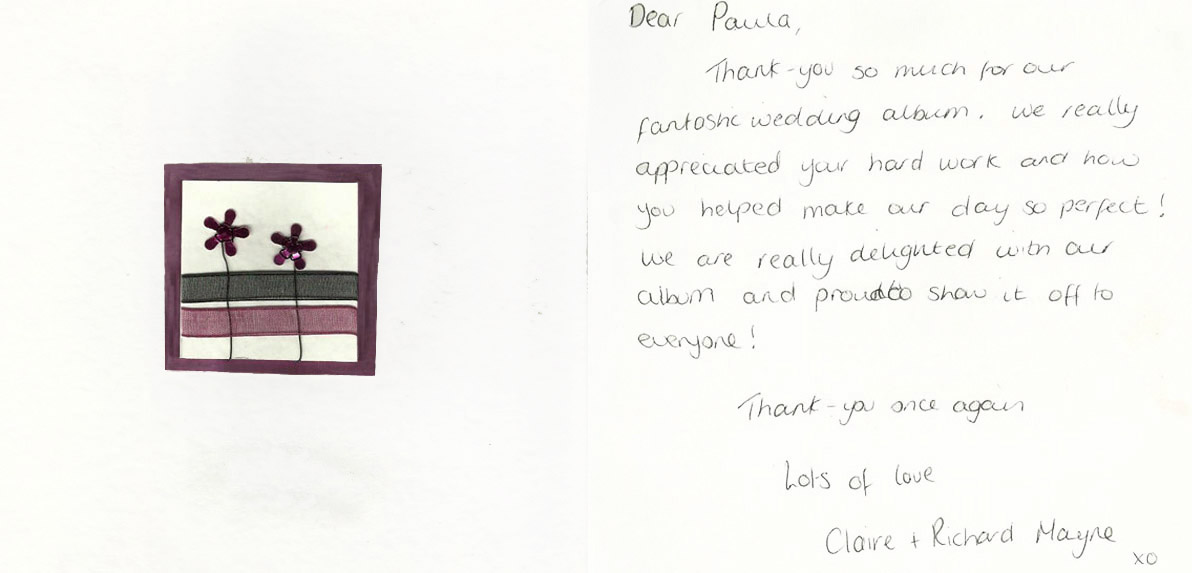 Dear Paula,
Thank-you so much for our
fantastic wedding album. We really
appreciated your hard work and how
you helped make our day so perfect!
We are really delighted with our
album and proud to show it off to
everyone!
Thank-you once again
Lots of love
Claire + Richard Mayne
XO